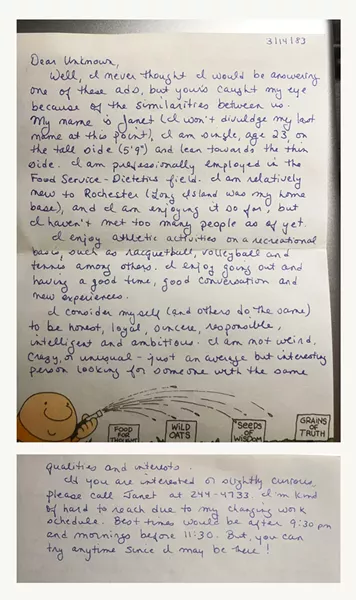 3/14/83
Dear Unknown,
Well, I never thought I would be answering
one of these ads, but yours caught my eye
because of the similarities between us.
My name is Janet (I won't divuldge my last
name at this point), I am single, age 23, on
the tall side (5'9") and lean towards the thin
side. I am professionally employed in the
Food Service-Dietetics field. I am relatively
new to Rochester (Long Island was my home
base), and I am enjoying it so far, but
I haven't met too many people as of yet.
I enjoy athletic activities on a recreational
basis, such as racquetball, volleyball and
tennis among others. I enjoy going out and
having a good time, good conversation and
new experiences.
I consider myself (and others do the same)
to be honest, loyal, sincere, responsible,
intelligent and ambitious. I am not weird,
crazy, or unusual - just an average but interesting
person looking for someone with the same
FOOD
FOR
THOUGHT
WILD
OATS
SEEDS
OF
WISDOM
GRAINS
OF
TRUTH
qualities and interests.
If you are interested or slightly curious
please call Janet at 244-4733. I'm kind
of hard to reach due to my changing work
schedule. Best times would be after 9:30 pm
and mornings before 11:30. But, you can
try anytime since I may be there!